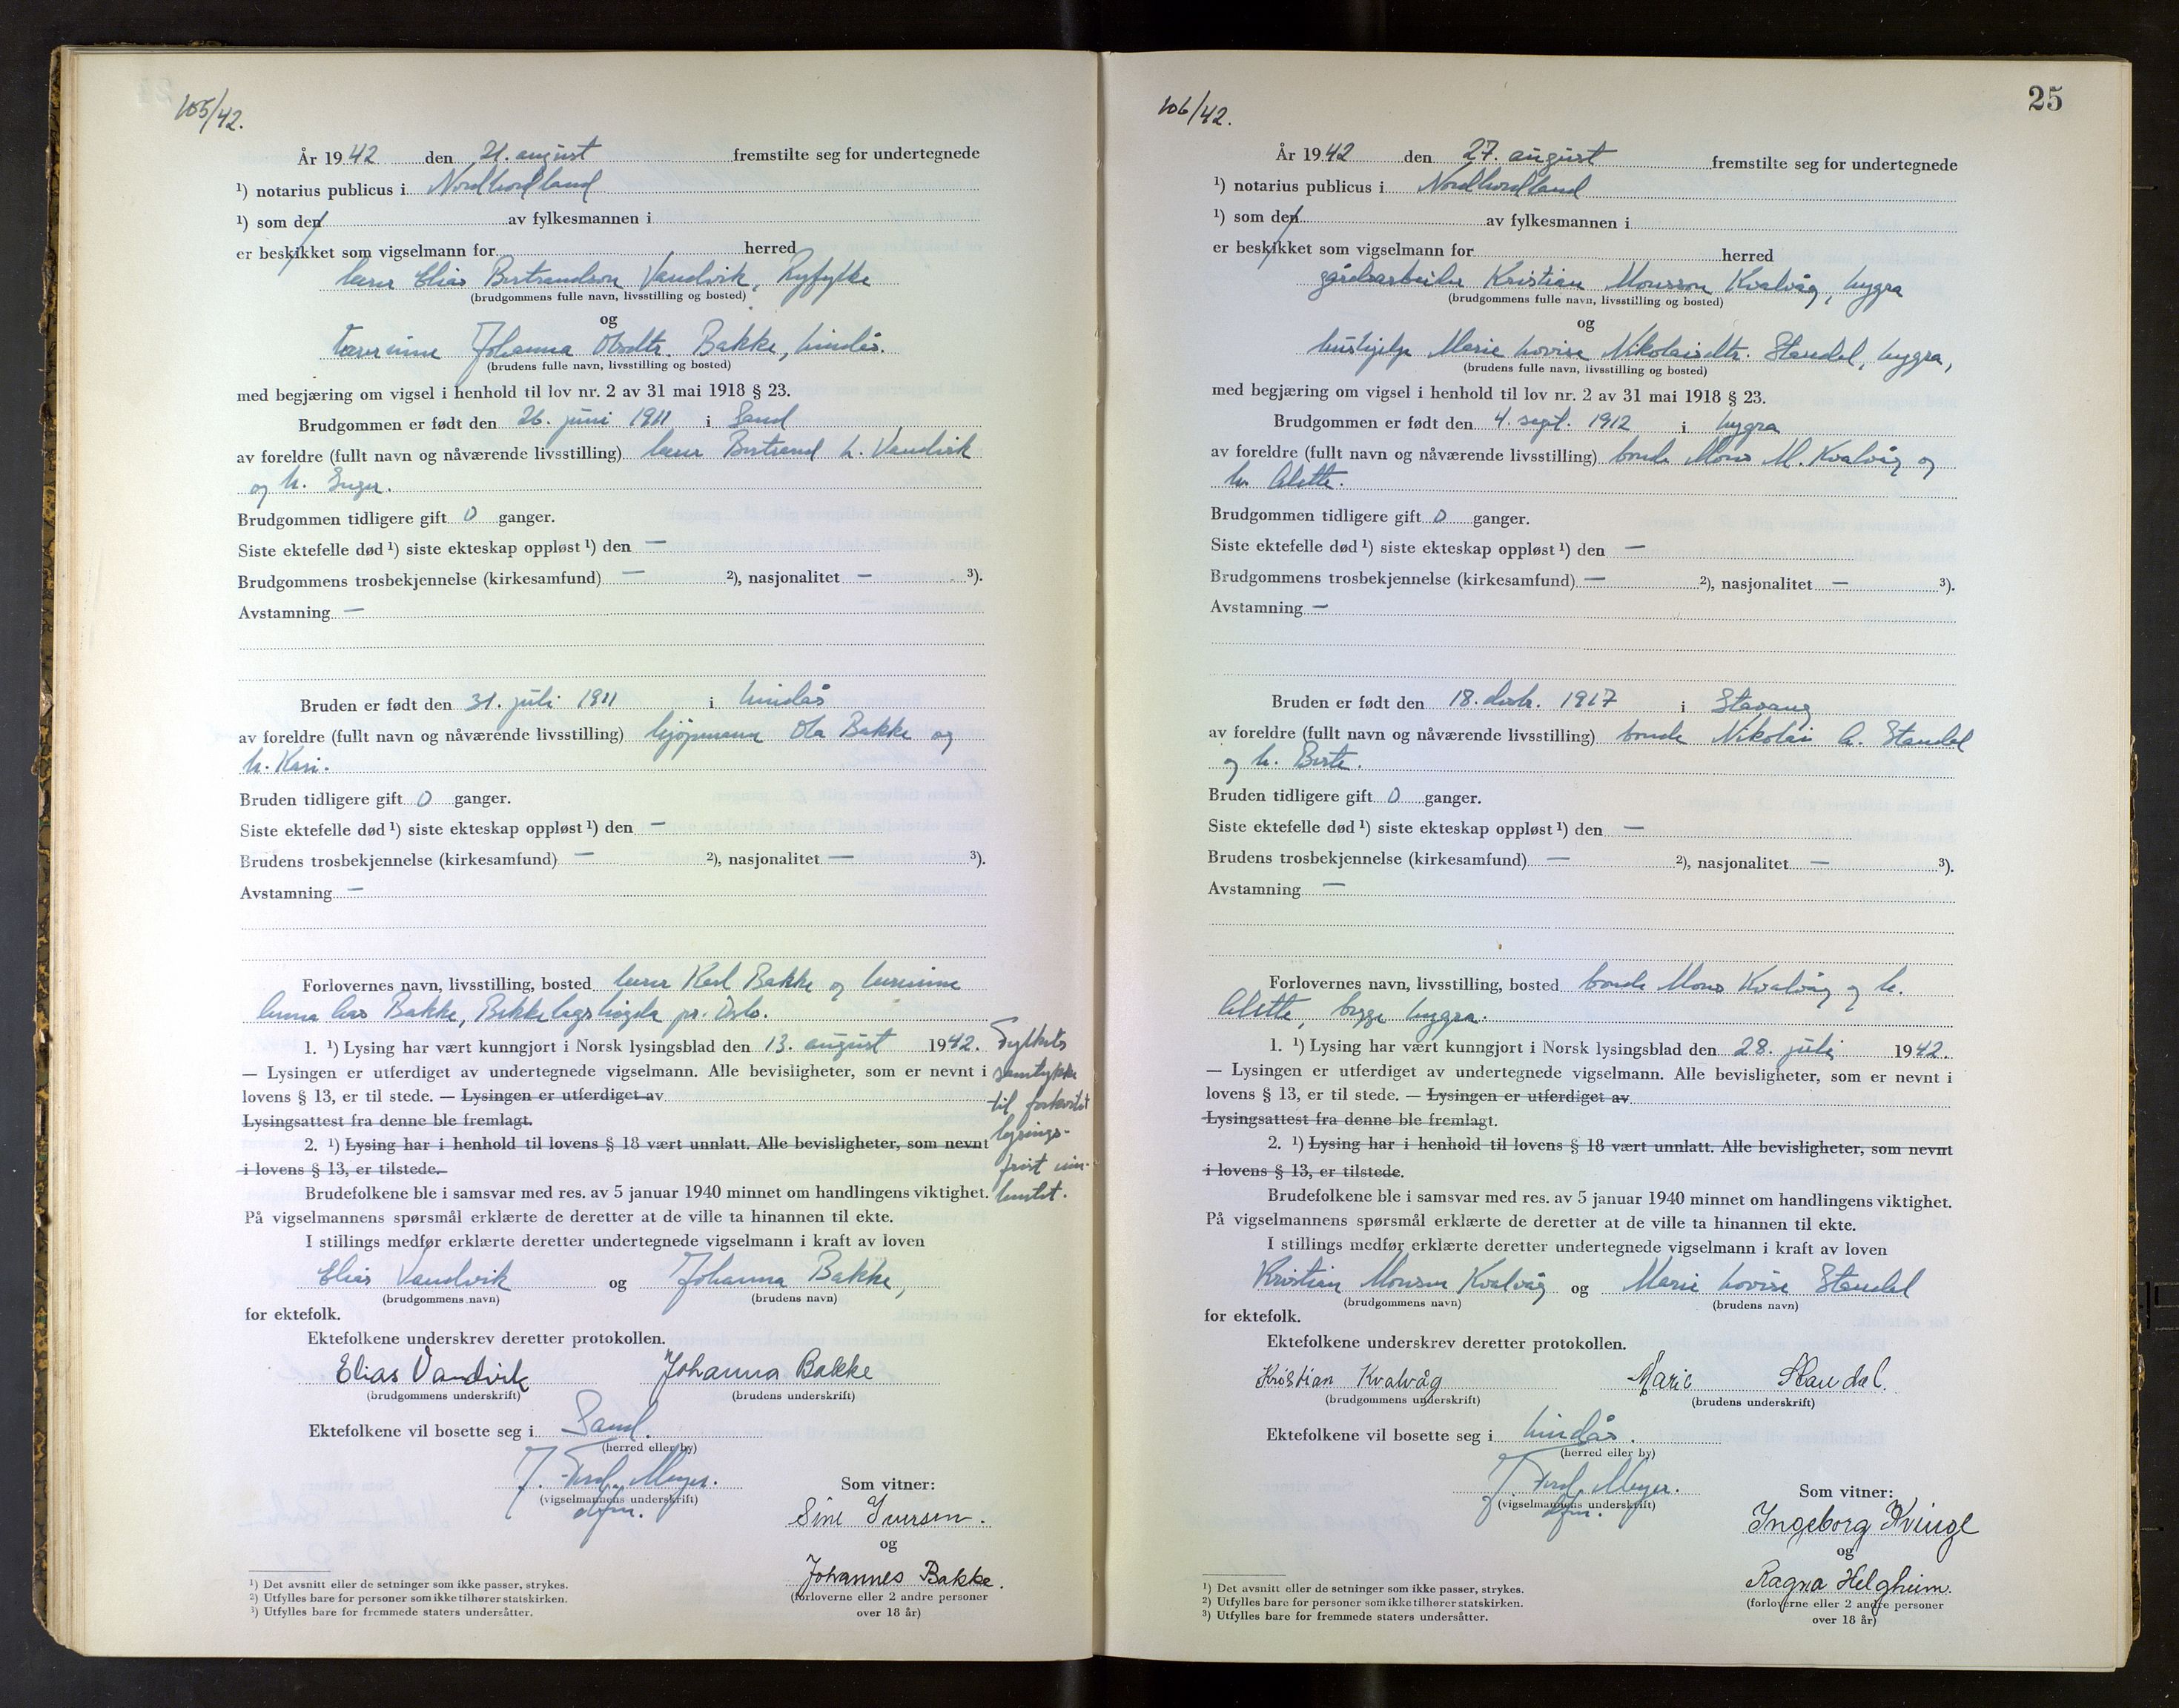 105/42.
År 1942 den 21. august fremstilte seg for undertegnede
¹) notarius publicus i Nordhordland
¹) som den av fylkesmannen i
er beskikket som vigselmann for herred
lærer Elias Bertrandson Vandvik, Ryfylke
(brudgommens fulle navn, livsstilling og bosted)
og
lærerinne Johanna Olsdtr. Bakke, Lindås.
(brudens fulle navn, livsstilling og bosted)
med begjæring om vigsel i henhold til lov nr. 2 av 31 mai 1918 § 23.
Brudgommen er født den 26. juni 1911 i Sand
av foreldre (fullt navn og nåværende livsstilling) lærer Bertrand L. Vandvik
og h. Inger.
Brudgommen tidligere gift 0 ganger.
Siste ektefelle død ¹) siste ekteskap oppløst ¹) den —
Brudgommens trosbekjennelse (kirkesamfund) — ²), nasjonalitet — ³).
Avstamning —
Bruden er født den 31. juli 1911 i Lindås
av foreldre (fullt navn og nåværende livsstilling) kjøpmann Ola Bakke og
h. Kari.
Bruden tidligere gift 0 ganger.
Siste ektefelle død ¹) siste ekteskap oppløst ¹) den —
Brudens trosbekjennelse (kirkesamfund) — ²), nasjonalitet — ³).
Avstamning —
Forlovernes navn, livsstilling, bosted lærer Karl Bakke og lærerinne
Anna Aas Bakke, Bekkelagshøgda pr. Oslo.
1. ¹) Lysing har vært kunngjort i Norsk lysingsblad den 13. august 1942.
— Lysingen er utferdiget av undertegnede vigselmann. Alle bevisligheter, som er nevnt i
lovens § 13, er til stede. — Lysingen er utferdiget av
Lysingsattest fra denne ble fremlagt.
2. ¹) Lysing har i henhold til lovens § 18 vært unnlatt. Alle bevisligheter, som nevnt
i lovens § 13, er tilstede.
Fylkets
samtykke
til forkortet
lysings-
frist inn-
hentet.
Brudefolkene ble i samsvar med res. av 5 januar 1940 minnet om handlingens viktighet.
På vigselmannens spørsmål erklærte de deretter at de ville ta hinannen til ekte.
I stillings medfør erklærte deretter undertegnede vigselmann i kraft av loven
Elias Vandvik og Johanna Bakke,
(brudgommens navn) (brudens navn)
for ektefolk.
Ektefolkene underskrev deretter protokollen.
Elias Vandvik Johanna Bakke
(brudgommens underskrift) (brudens underskrift)
Ektefolkene vil bosette seg i Sand.
(herred eller by)
J. Ferd. Meyer.
(vigselmannens underskrift)
dfm.
Som vitner:
Sine Iversen.
og
Johannes Bakke.
(forloverne eller 2 andre personer
over 18 år)
¹) Det avsnitt eller de setninger som ikke passer, strykes.
²) Utfylles bare for personer som ikke tilhører statskirken.
³) Utfylles bare for fremmede staters undersåtter.
25
106/42.
År 1942 den 27. august fremstilte seg for undertegnede
¹) notarius publicus i Nordhordland
¹) som den av fylkesmannen i
er beskikket som vigselmann for herred
gårdsarbeider Kristian Monsson Kvalvåg, Lygra
(brudgommens fulle navn, livsstilling og bosted)
og
hushjelp Marie Lovise Nikolaisdtr. Standal, Lygra,
(brudens fulle navn, livsstilling og bosted)
med begjæring om vigsel i henhold til lov nr. 2 av 31 mai 1918 § 23.
Brudgommen er født den 4. sept. 1912 i Lygra
av foreldre (fullt navn og nåværende livsstilling) bonde Mons M. Kvalvåg og
h. Alette.
Brudgommen tidligere gift 0 ganger.
Siste ektefelle død ¹) siste ekteskap oppløst ¹) den —
Brudgommens trosbekjennelse (kirkesamfund) — ²), nasjonalitet — ³).
Avstamning —
Bruden er født den 18. desbr. 1917 i Stavang
av foreldre (fullt navn og nåværende livsstilling) bonde Nikolai A. Standal
og h. Berte.
Bruden tidligere gift 0 ganger.
Siste ektefelle død ¹) siste ekteskap oppløst ¹) den —
Brudens trosbekjennelse (kirkesamfund) — ²), nasjonalitet — ³).
Avstamning —
Forlovernes navn, livsstilling, bosted bonde Mons Kvalvåg og h.
Alette, begge Lygra.
1. ¹) Lysing har vært kunngjort i Norsk lysingsblad den 28. juli 1942.
— Lysingen er utferdiget av undertegnede vigselmann. Alle bevisligheter, som er nevnt i
lovens § 13, er til stede. — Lysingen er utferdiget av
Lysingsattest fra denne ble fremlagt.
2. ¹) Lysing har i henhold til lovens § 18 vært unnlatt. Alle bevisligheter, som nevnt
i lovens § 13, er tilstede.
Brudefolkene ble i samsvar med res. av 5 januar 1940 minnet om handlingens viktighet.
På vigselmannens spørsmål erklærte de deretter at de ville ta hinannen til ekte.
I stillings medfør erklærte deretter undertegnede vigselmann i kraft av loven
Kristian Monsson Kvalvåg og Marie Lovise Standal
(brudgommens navn) (brudens navn)
for ektefolk.
Ektefolkene underskrev deretter protokollen.
Kristian Kvalvåg Marie Standal.
(brudgommens underskrift) (brudens underskrift)
Ektefolkene vil bosette seg i Lindås.
(herred eller by)
J. Ferd. Meyer.
(vigselmannens underskrift)
dfm.
Som vitner:
Ingeborg Kvinge
og
Ragna Helgheim.
(forloverne eller 2 andre personer
over 18 år)
¹) Det avsnitt eller de setninger som ikke passer, strykes.
²) Utfylles bare for personer som ikke tilhører statskirken.
³) Utfylles bare for fremmede staters undersåtter.